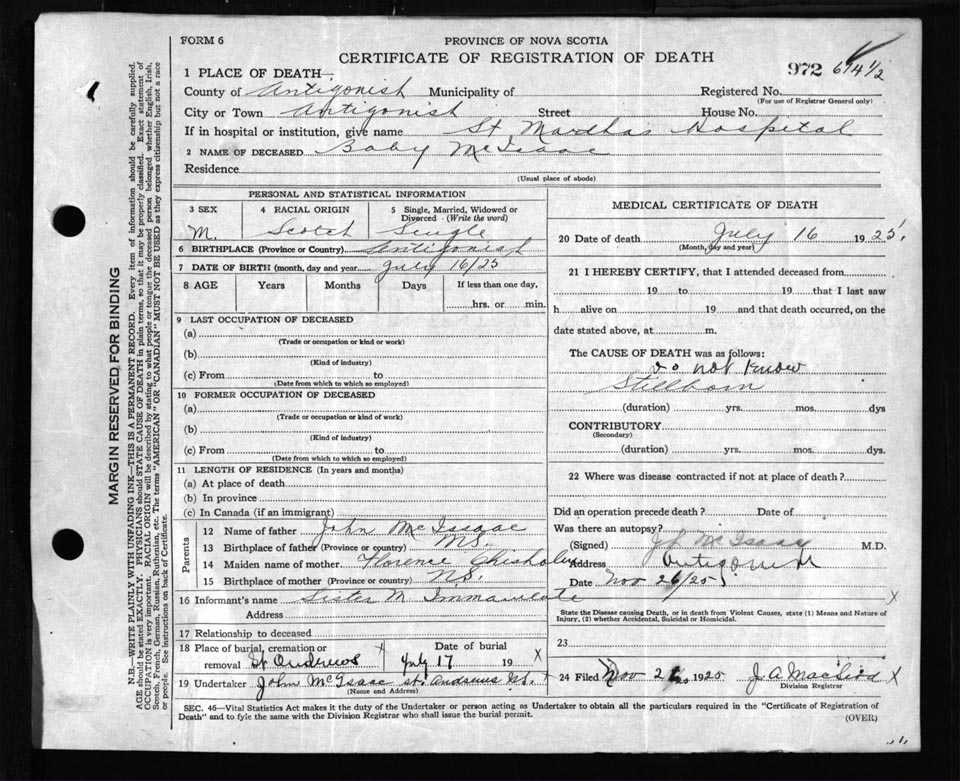 FORM 6
PROVINCE OF NOVA SCOTIA
CERTIFICATE OF REGISTRATION OF DEATH
972 614 1/2
1 PLACE OF DEATH—
County of Antigonish Municipality of Registered No.
(For use of Registrar General only)
City or Town Antigonish Street House No.
If in hospital or institution, give name St. Marthas Hospital
2 NAME OF DECEASED Baby McIsaac
Residence
(Usual place of abode)
PERSONAL AND STATISTICAL INFORMATION
3 SEX 4 RACIAL ORIGIN 5 Single, Married, Widowed or Divorced (Write the word)
M. Scotch Single
6 BIRTHPLACE (Province or Country) Antigonish
7 DATE OF BIRTH (month, day and year July 16/25
8 AGE Years Months Days If less than one day,
hrs. or min.
9 LAST OCCUPATION OF DECEASED
(a)
(Trade or occupation or kind or work)
(b)
(Kind of industry)
(c) From to
(Date from which to which so employed)
10 FORMER OCCUPATION OF DECEASED
(a)
(Trade or occupation or kind of work)
(b)
(Kind of industry)
(c) From to
(Date from which to which so employed)
11 LENGTH OF RESIDENCE (In years and months)
(a) At place of death
(b) In province
(c) In Canada (if an immigrant)
Parents
12 Name of father John McIsaac
13 Birthplace of father (Province or country) N.S.
14 Maiden name of mother Florence Chisholm
15 Birthplace of mother (Province or country) N.S.
16 Informant's name Sister M Immaculate
Address
17 Relationship to deceased
18 Place of burial, cremation or removal St Andrews x Date of burial July 17 19 x
19 Undertaker John McIsaac St. Andrews
(Name and Address)
MEDICAL CERTIFICATE OF DEATH
20 Date of death July 16 1925.
(Month, day and year)
21 I HEREBY CERTIFY, that I attended deceased from
19 to 19 that I last saw
h alive on 19 and that death occurred, on the
date stated above, at m.
The CAUSE OF DEATH was as follows:
do not know
Stillborn
(duration) yrs. mos. dys
CONTRIBUTORY
(Secondary)
(duration) yrs. mos. dys.
22 Where was disease contracted if not at place of death?
Did an operation precede death? Date of
Was there an autopsy?
(Signed) McIsaac M.D.
Address Antigonish
Date Nov 26/25
x
State the Disease causing Death, or in death from Violent Causes, state (1) Means and Nature of
Injury, (2) whether Accidental, Suicidal or Homicidal.
23
24 Filed Nov 1925 J. A. MacLeod x
Division Registrar
SEC. 46—Vital Statistics Act makes it the duty of the Undertaker or person acting as Undertaker to obtain all the particulars required in the "Certificate of Registration of
Death" and to fyle the same with the Division Registrar who shall issue the burial permit.
(OVER)
MARGIN RESERVED FOR BINDING
N.B.—WRITE PLAINLY WITH UNFADING INK—THIS IS A PERMANENT RECORD. Every item of information should be carefully supplied.
AGE should be stated EXACTLY. PHYSICIANS should STATE CAUSE OF DEATH in plain terms, so that it may be properly classified. Exact statement of
OCCUPATION is very important. RACIAL ORIGIN will be described by stating to what people or tongue the deceased person belonged whether English, Irish,
Scotch, French, German, Russian, Ruthenian, etc. The terms "AMERICAN" OR "CANADIAN" MUST NOT BE USED as they express citizenship but not a race
or people. See instructions on back of Certificate.